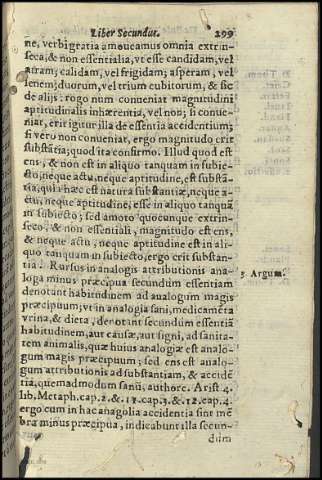 Liber Secundus. 299
ne, verbigratia amoueamus omnia extrin-
seca, & non essentialia, vt esse candidam, vel
atram; calidam, vel frigidam; asperam, vel
lenem; duorum, vel trium cubitorum, & sic
de alijs: rogo num conueniat magnitudini
aptitudinalis inhærentia, vel non; si conue-
niat, erit igitur illa de essentia accidentium;
si vero non conueniat, ergo magnitudo crit
substātia; quod ita confirmo. Illud quod est
ens, & non est in aliquo tanquam in subie-
cto, neque actu, neque aptitudine, est substā-
tia, qui hæc est natura substantiæ, neque a-
ctu, neque aptitudine, esse in aliquo tanquā
in subiecto; sed amoto quocunque extrin-
seco, & non essentiali, magnitudo est ens,
& neque actu, neque aptitudine est in ali-
quo tanquam in subiecto, ergo crit substan-
tia. Rursus in analogis attributionis ana-
loga minus præcipua secundum essentiam
denotant habitudinem ad analogum magis
præcipuum; vt in analogia sani, medicamēta
vrina, & dieta, denotant secundum essentiā
habitudinem, aut causæ, aut signi, ad sanita-
tem animalis, quæ huius analogiæ est analo-
gum magis præcipuum; sed ens est analo-
gum attributionis ad substantiam, & accidē-
tia, quemadmodum sanū, authore. Arist 4.
lib. Metaph. cap. 2. & 11. cap. 3. & 12. cap. 4.
ergo cum in hac anagolia accidentia sint mē
bra minus præcipua, indicabunt illa secun-
dum
3. Argum.